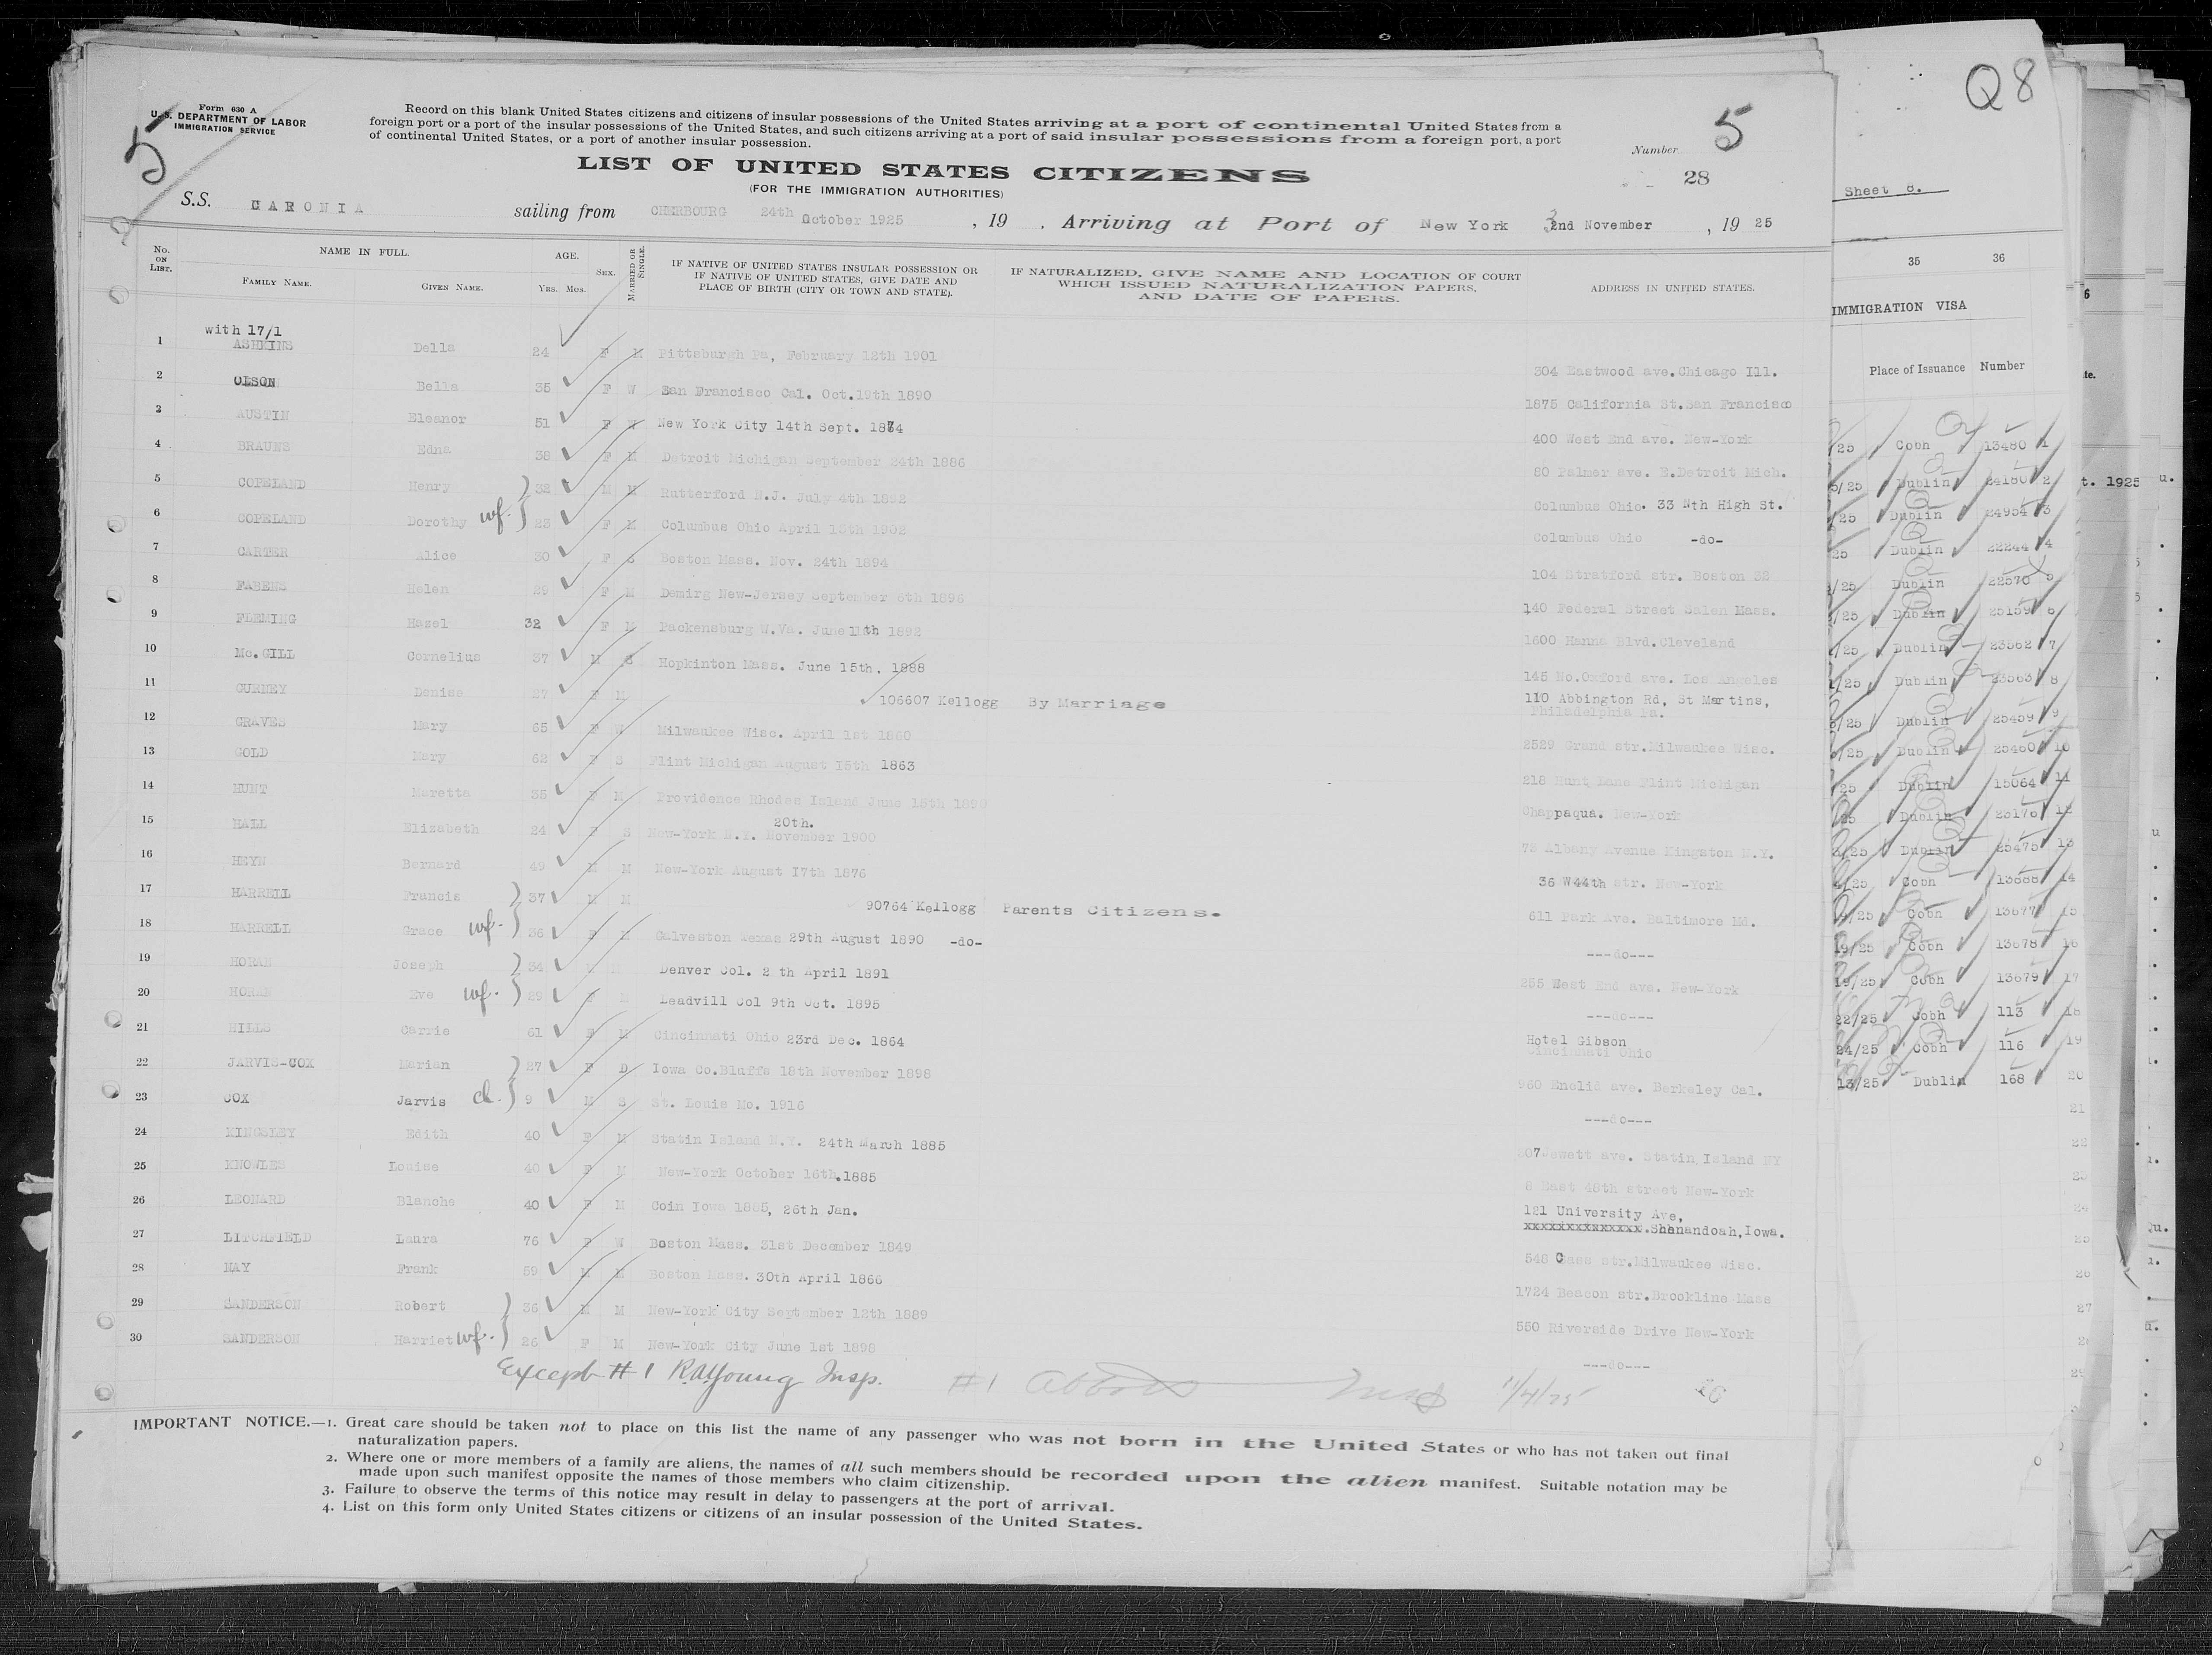 Form 630 A
U.S. DEPARTMENT OF LABOR
IMMIGRATION SERVICE
5
Record on this blank United States citizens and citizens of insular possessions of the United States arriving at a port of continental United States from a
foreign port or a port of the insular possessions of the United States, and such citizens arriving at a port of said insular possessions from a foreign port, a port
of continental United States, or a port of another insular possession.
5
Number
28
LIST OF UNITED STATES CITIZENS
(FOR THE IMMIGRATION AUTHORITIES)
S.S. CARONIA sailing from CHERBOURG 24th October 1925 , 19 . Arriving at Port of New York 2nd November , 19 25
No. ON LIST. NAME IN FULL. AGE. SEX. MARRIED OR SINGLE. IF NATIVE OF UNITED STATES INSULAR POSSESSION OR
IF NATIVE OF UNITED STATES, GIVE DATE AND
PLACE OF BIRTH (CITY OR TOWN AND STATE).
IF NATURALIZED, GIVE NAME AND LOCATION OF COURT
WHICH ISSUED NATURALIZATION PAPERS,
AND DATE OF PAPERS.
ADDRESS IN UNITED STATES.
FAMILY NAME. GIVEN NAME. YRS. MOS.
with 17/1
1 ASHKINS Della 24 F M Pittsburgh Pa, February 12th 1901 304 Eastwood ave.Chicago Ill.
2 OLSON Bella 35 F W San Francisco Cal. Oct.19th 1890 1875 California St.San Francisco
3 AUSTIN Eleanor 51 F W New York City 14th Sept. 1874 400 West End ave. New-York
4 BRAUNS Edna 38 F M Detroit Michigan September 24th 1886 80 Palmer ave. E.Detroit Mich.
5 COPELAND Henry 32 M M Rutterford N.J. July 4th 1892 Columbus Ohio. 33 Nth High St.
6 COPELAND Dorothy wf. 23 F M Columbus Ohio April 13th 1902 Columbus Ohio -do-
7 CARTER Alice 30 F S Boston Mass. Nov. 24th 1894 104 Stratford str. Boston 32
8 FABENS Helen 29 F M Demirg New-Jersey September 6th 1896 140 Federal Street Salen Mass.
9 FLEMING Hazel 32 F M Packensburg W.Va. June 11th 1892 1600 Hanna Blvd.Cleveland
10 Mc.GILL Cornelius 37 M S Hopkinton Mass. June 15th, 1888 145 No.Oxford ave. Los Angeles
11 GURNEY Denise 27 F M 106607 Kellogg By Marriage 110 Abbington Rd, St Martins,
Philadelphia Pa.
12 GRAVES Mary 65 F W Milwaukee Wisc. April 1st 1860 2529 Grand str.Milwaukee Wisc.
13 GOLD Mary 62 F S Flint Michigan August 15th 1863 218 Hunt Lane Flint Michigan
14 HUNT Maretta 35 F M Providence Rhodes Island June 15th 1890 Chappaqua. New-York
20th.
15 HALL Elizabeth 24 F S New-York N.Y. November 1900 73 Albany Avenue Kingston N.Y.
16 HEYN Bernard 49 M M New-York August 17th 1876 36 W44th str. New-York
17 HARRELL Francis 37 M M 90764 Kellogg Parents Citizens. 611 Park Ave. Baltimore Md.
18 HARRELL Grace wf. 36 F M Galveston Texas 29th August 1890 -do- ---do---
19 HORAN Joseph 34 Denver Col. 2 th April 1891 255 West End ave. New-York
20 HORAN Eve wf. 29 F M Leadvill Col 9th Oct. 1895 ---do---
21 HILLS Carrie 61 F M Cincinnati Ohio 23rd Dec. 1864 Hotel Gibson
Cincinnati Ohio
22 JARVIS-COX Marian 27 F D Iowa Co.Bluffs 18th November 1898 960 Enclid ave. Berkeley Cal.
23 COX Jarvis cl. 9 M S St. Louis Mo. 1916 ---do---
24 KINGSLEY Edith 40 F M Statin Island N.Y. 24th March 1885 507 Jewett ave. Statin Island NY
25 KNOWLES Louise 40 F M New-York October 16th.1885 8 East 48th street New-York
26 LEONARD Blanche 40 F M Coin Iowa 1885, 26th Jan. 121 University Ave,
xxxxxxxxxxxxxx.Shenandoah,Iowa.
27 LITCHFIELD Laura 76 F W Boston Mass. 31st December 1849 548 Cass str.Milwaukee Wisc.
28 MAY Frank 59 M M Boston Mass. 30th April 1866 1724 Beacon str.Brookline Mass
29 SANDERSON Robert 36 M M New-York City September 12th 1889 550 Riverside Drive New-York
30 SANDERSON Harriet wf. 26 F M New-York City June 1st 1898 ---do---
Except #1 R.A.Young Insp. #1 Abbott Insp 11/4/25
IMPORTANT NOTICE.—1. Great care should be taken not to place on this list the name of any passenger who was not born in the United States or who has not taken out final
naturalization papers.
2. Where one or more members of a family are aliens, the names of all such members should be recorded upon the alien manifest. Suitable notation may be
made upon such manifest opposite the names of those members who claim citizenship.
3. Failure to observe the terms of this notice may result in delay to passengers at the port of arrival.
4. List on this form only United States citizens or citizens of an insular possession of the United States.
Q8
Sheet 8.
35 36
IMMIGRATION VISA
Place of Issuance Number
/25 Cobh 13480 1
5/25 Dublin 24180 2
/25 Dublin 24954 3
25 Dublin 22244 4
/25 Dublin 22570 5
/25 Dublin 25159 6
/25 Dublin 23562 7
/25 Dublin 23563 8
/25 Dublin 25459 9
/25 Dublin 25460 10
/25 Dublin 15064 11
25 Dublin 23176 12
/25 Dublin 25475 13
/25 Cobh 13688 14
/25 Cobh 13677 15
19/25 Cobh 13678 16
19/25 Cobh 13679 17
22/25 Cobh 113 18
24/25 Cobh 116 19
13/25 Dublin 168 20
21
22
23
24
25
26
27
t. 1925